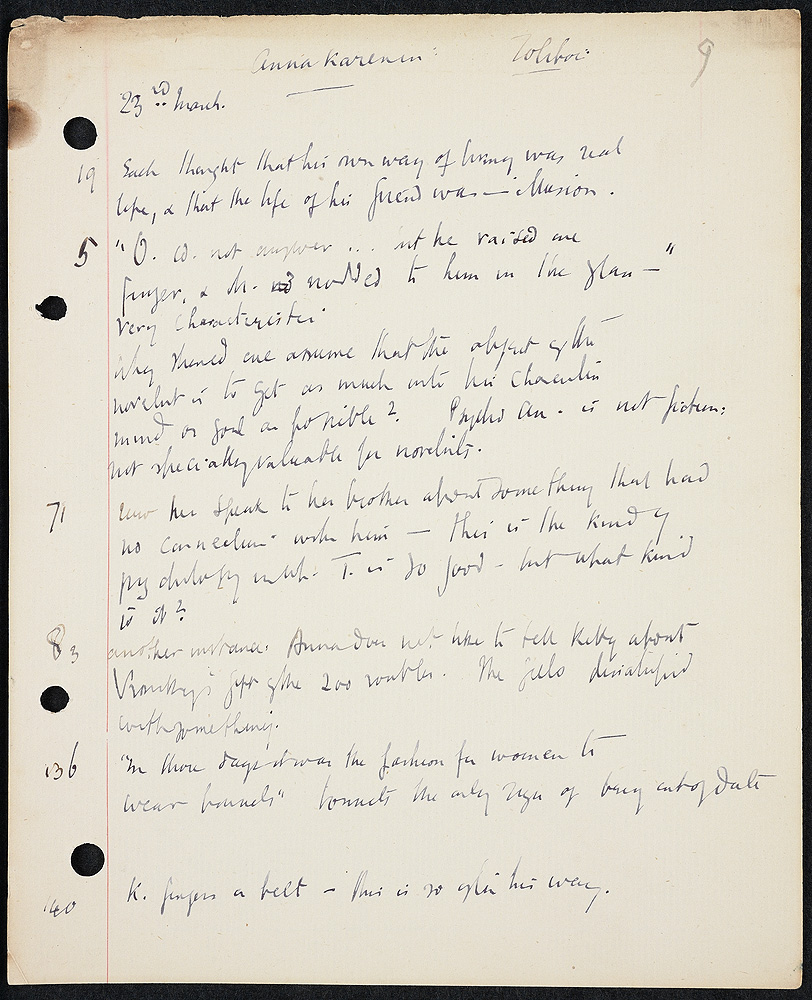 Anna Karenin Tolstoi
9
23rd March.
19 Each thought that his own way of living was real
life, & that the life of his friend was – illusion.
5 " O. cd. not answer ... but he raised one
finger, & M. nodded to him in the glass – "
very characteristic
Why should one assume that the object of the
novelist is to get as much into his characters
mind or soul as possible? Psycho an. is not fiction:
not specially valuable for novelists.
71 her speak to her brother about something that had
no connection with him – this is the kind of
psychology T. is so good – but what kind
is it?
83 another instance. Anna does not like to tell Kitty about
Vronsky's gift of the 200 roubles. She feels dissatisfied
with something.
136 "In those days it was the fashion for women to
wear bonnets" bonnets the only sign of being out of date
140 K. fingers a belt – this is so often his way.